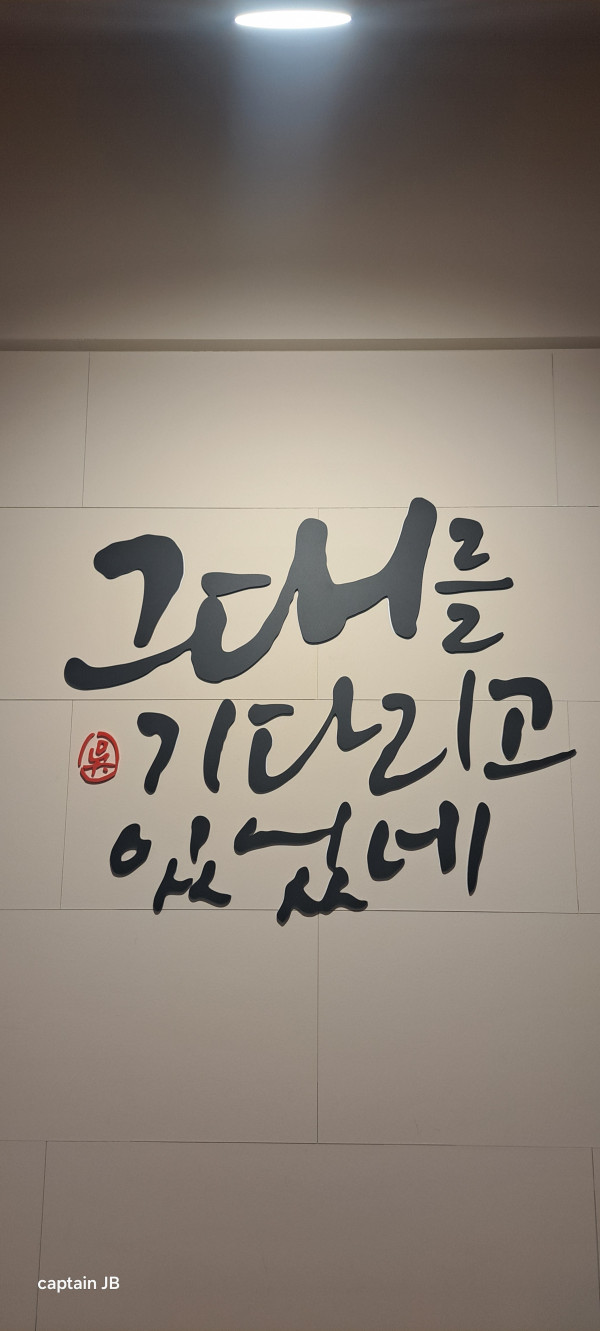 그대를
기다리고
있었네
吳
captain JB